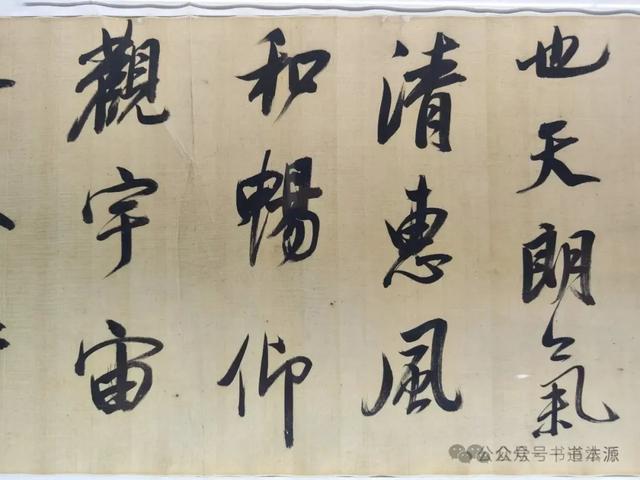 也天朗氣
清惠風
和暢仰
觀宇宙
公众号书道本源